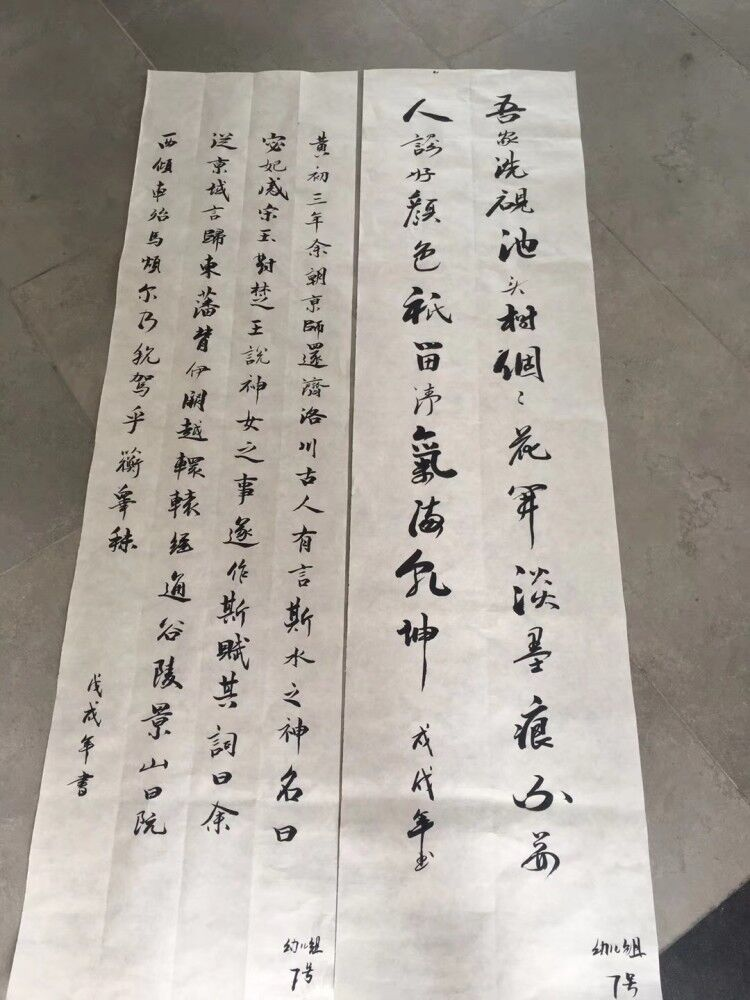 吾家洗硯池头樹個々花開淡墨痕不要
人誇好顏色祇留清氣滿乾坤
戊戌年书
幼儿组
7号
黄初三年余朝京師還濟洛川古人有言斯水之神名曰
宓妃感宋玉對楚王說神女之事遂作斯賦其詞曰余
從京域言歸東藩背伊闕越轘轅經通谷陵景山日既
西傾車殆馬煩尔乃稅駕乎蘅皋秣
戊戌年書
幼儿组
7号